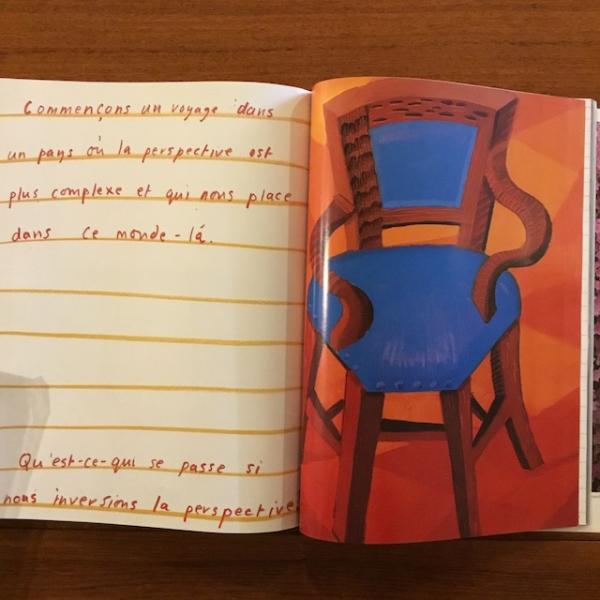 Commençons un voyage dans
un pays où la perspective est
plus complexe et qui nous place
dans ce monde-là.
Qu'est-ce-qui se passe si
nous inversions la perspective